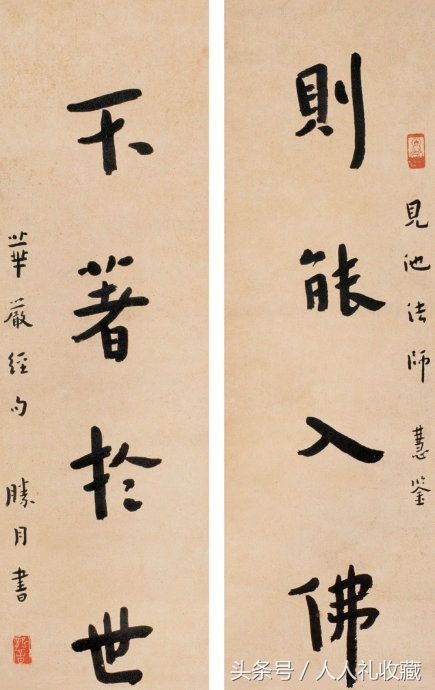 見池法師 慧鑒
則能入佛
不著於世
華嚴經句 勝月書
头条号 / 人人礼收藏